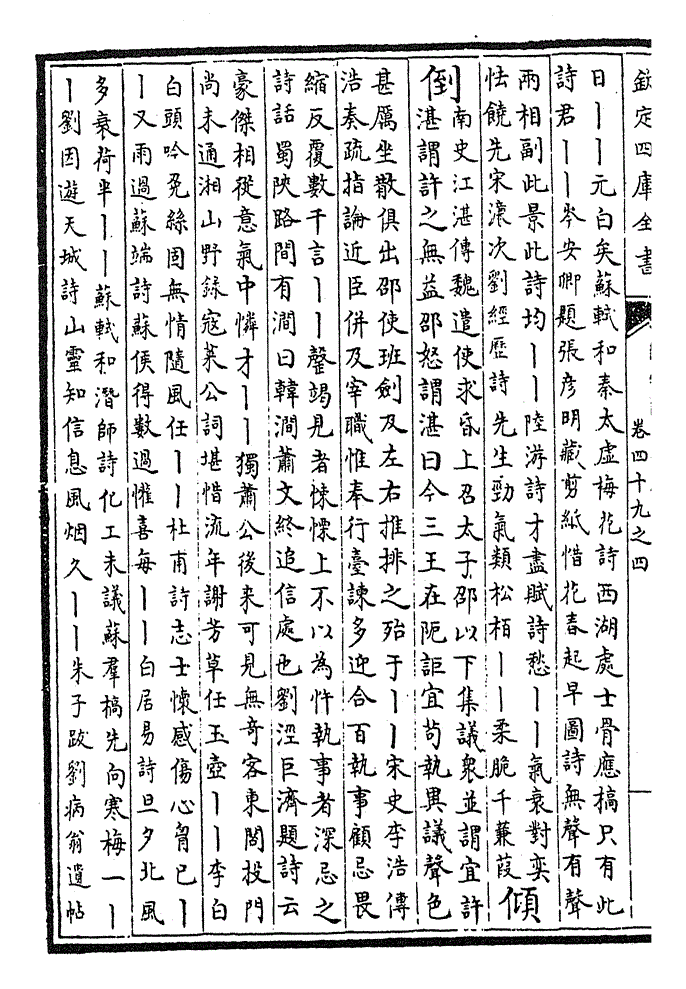 欽定四庫全書
卷四十九之四
日丨丨元白矣蘇軾和秦太虛梅花詩西湖處士骨應槁只有此
詩君丨丨岑安卿題張彥明藏剪紙惜花春起早圖詩無聲有聲
兩相副此景此詩均丨丨陸游詩才盡賦詩愁丨丨氣衰對奕
怯饒先宋濂次劉經歷詩先生勁氣類松栢丨丨柔脆千蒹葭
傾
倒
南史江湛傳魏遣使求昏上召太子邵以下集議衆並謂宜許
湛謂許之無益邵怒謂湛曰今三王在阨詎宜苟執異議聲色
甚厲坐散俱出邵使班劍及左右推排之殆于丨丨宋史李浩傳
浩奏疏指論近臣併及宰職惟奉行臺諫多迎合百執事顧忌畏
縮反覆數千言丨丨罄竭見者悚慄上不以為忤執事者深忌之
詩話蜀陜路間有澗曰韓澗蕭文終追信處也劉涇巨濟題詩云
豪傑相從意氣中憐才丨丨獨蕭公後来可見無奇客東閣投門
尚未通湘山野錄寇萊公詞堪惜流年謝芳草任玉壺丨丨李白
白頭吟兔絲固無情隨風任丨丨杜甫詩志士懷感傷心胷已丨
丨又雨過蘇端詩蘇侯得數過懽喜每丨丨白居易詩旦夕北風
多衰荷半丨丨蘇軾和潛師詩化工未議蘇羣槁先向寒梅一丨
丨劉因遊天城詩山靈知信息風烟久丨丨朱子跋劉病翁遺帖